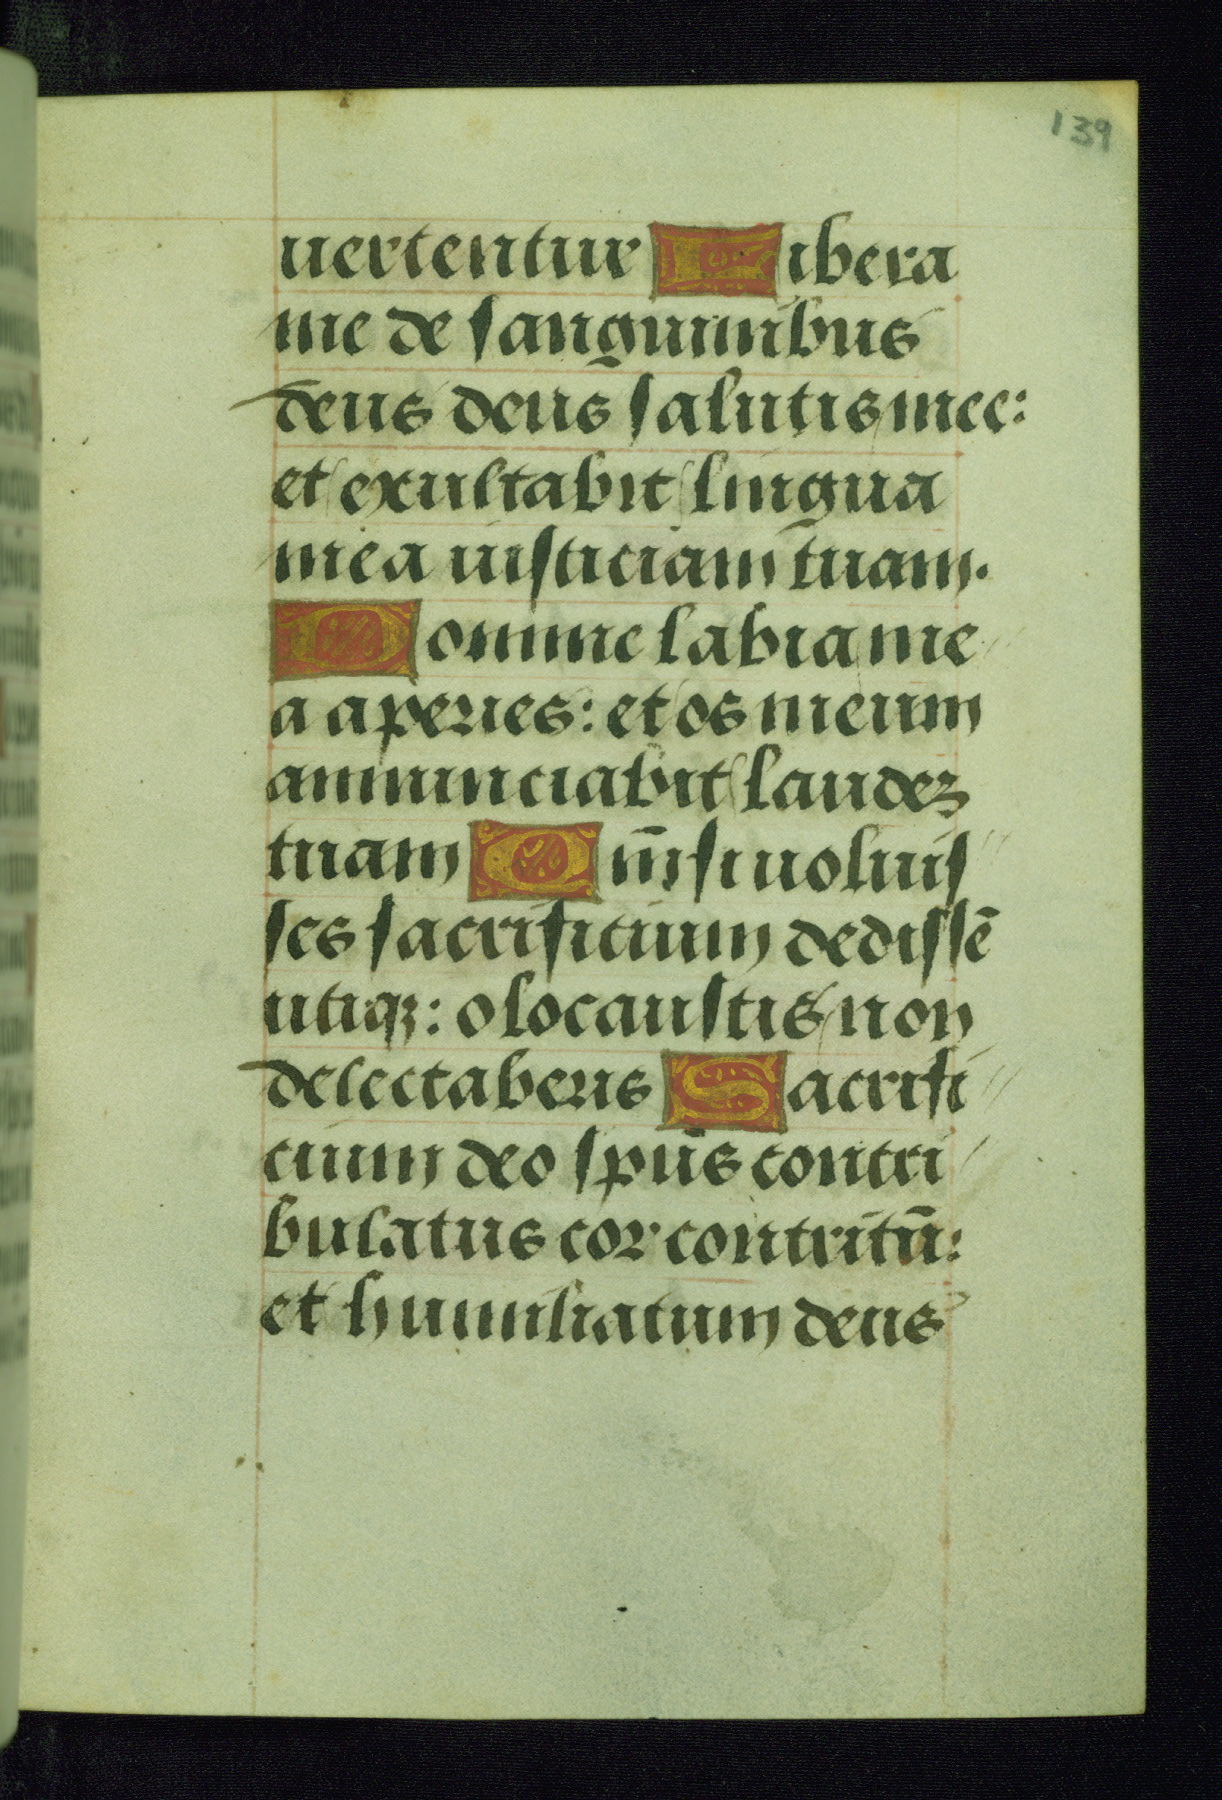 139
uertentur Libera
me de sanguinibus
deus deus salutis mee:
et exultabit lingua
mea iusticiam tuam.
Domine labia me
a aperies: et os meum
annunciabit laudeꝫ
tuam Qm̄ si uoluis
ses sacrificium dedissē
utiqꝫ: olocaustis non
delectaberis Sacrifi
cium deo spūs contri
bulatus cor contritū:
et humiliatum deus